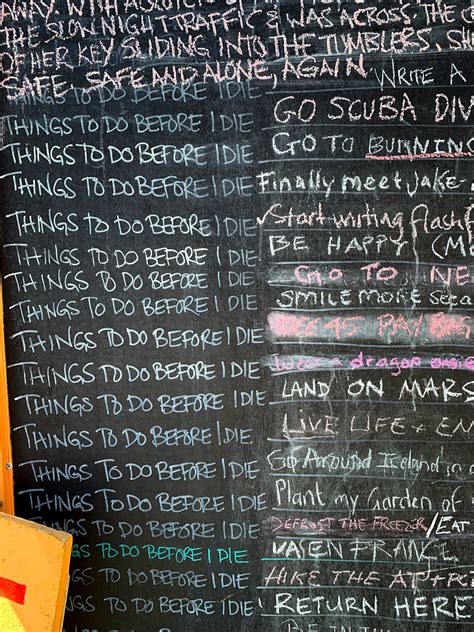 AWAY WITH
THE SLOW NIGHT TRAFFIC & WAS ACROSS THE
OF HER KEY SLIDING INTO THE TUMBLERS. SH
SAFE. SAFE AND ALONE, AGAIN. WRITE A
THINGS TO DO BEFORE I DIE
THINGS TO DO BEFORE I DIE GO SCUBA DIV
THINGS TO DO BEFORE I DIE GO TO BURNING
THINGS TO DO BEFORE I DIE Finally meet Jake-
THINGS TO DO BEFORE I DIE Start writing flash
THINGS TO DO BEFORE I DIE BE HAPPY (M
THINGS TO DO BEFORE I DIE GO TO NE
THINGS TO DO BEFORE I DIE SMILE MORE
THINGS TO DO BEFORE I DIE TO PAY
THINGS TO DO BEFORE I DIE a dragon
THINGS TO DO BEFORE I DIE LAND ON MARS
THINGS TO DO BEFORE I DIE LIVE LIFE + EN
THINGS TO DO BEFORE I DIE Go Around Iceland in
THINGS TO DO BEFORE I DIE Plant my Garden of
THINGS TO DO BEFORE I DIE DEFROST THE FREEZER/EAT
THINGS TO DO BEFORE I DIE FRANCE
THINGS TO DO BEFORE I DIE HIKE THE AT + PC
THINGS TO DO BEFORE I DIE RETURN HERE